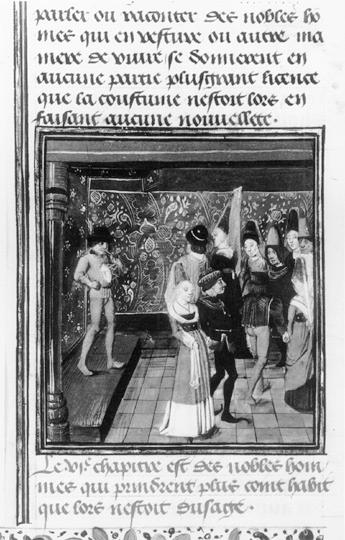 parler ou raconter des nobles ho
mes qui en vesture ou autre ma
niere de vivre se donnerent en
aucune partie plusgrant licence
que la coustume nestoit lors en
faisant aucune nouvellete.
Le VIe chapitre est des nobles hom
mes qui prindrent plus court habit
que lors nestoit dusage.